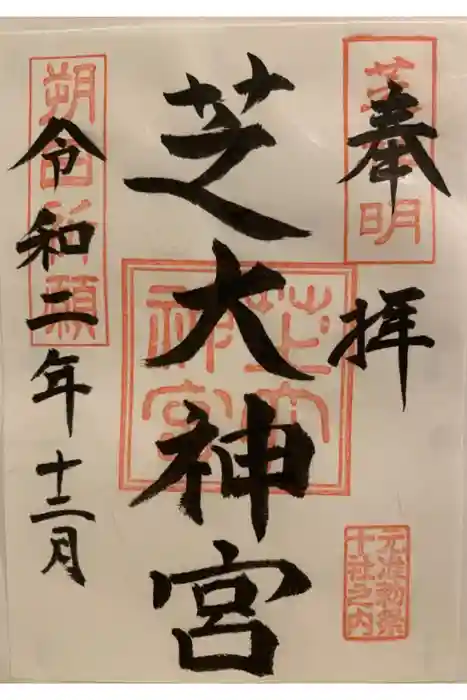 奉拝
芝神明
元准勅祭
十社之内
芝大神宮
芝大
神宮
朔日祈願
令和二年十二月